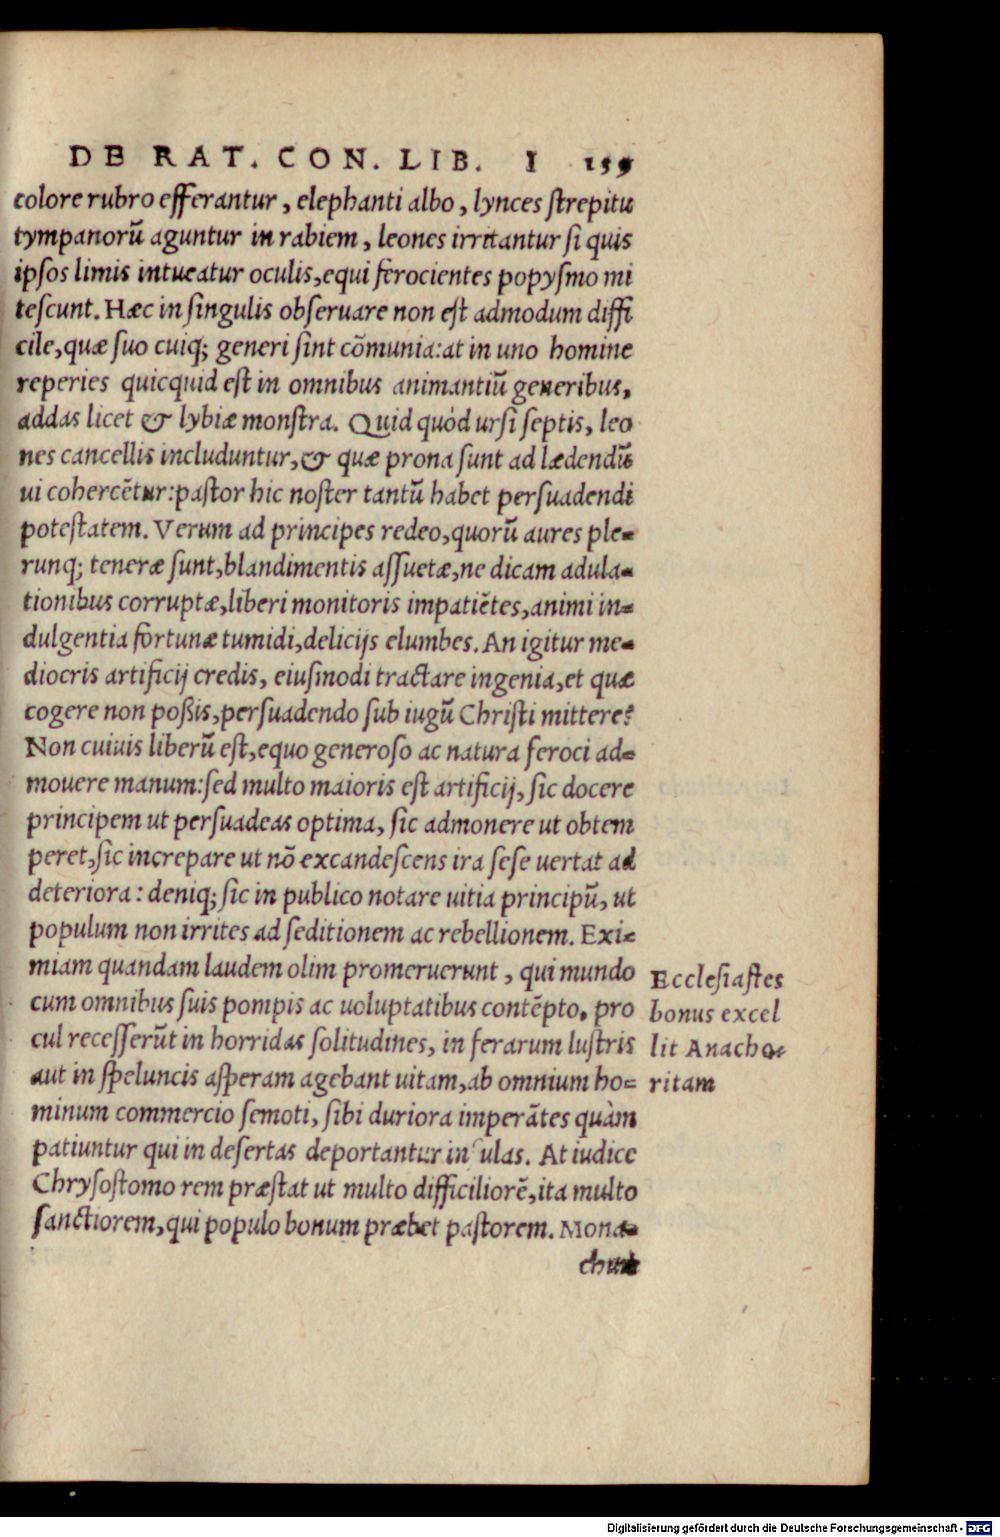 DE RAT. CON. LIB. I 159
colore rubro efferantur, elephanti albo, lynces strepitu
tympanorũ aguntur in rabiem, leones irritantur si quis
ipsos limis intueatur oculis, equi ferocientes popysmo mi
tescunt. Hæc in singulis obseruare non est admodum diffi
cile, quæ suo cuiq; generi sint cõmunia: at in uno homine
reperies quicquid est in omnibus animantiũ generibus,
addas licet & lybiæ monstra. Quid quòd ursi septis, leo
nes cancellis includuntur, & quæ prona sunt ad lædendũ
ui cohercẽtur: pastor hic noster tantũ habet persuadendi
potestatem. Verum ad principes redeo, quorũ aures ple=
runq; teneræ sunt, blandimentis assuetæ, ne dicam adula=
tionibus corruptæ, liberi monitoris impatiẽtes, animi in=
dulgentia fortunæ tumidi, delicijs elumbes. An igitur me=
diocris artificij credis, eiusmodi tractare ingenia, et quæ
cogere non poßis, persuadendo sub iugũ Christi mittere?
Non cuiuis liberũ est, equo generoso ac natura feroci ad=
mouere manum: sed multo maioris est artificij, sic docere
principem ut persuadeas optima, sic admonere ut obtem
peret, sic increpare ut nõ excandescens ira sese uertat ad
deteriora: deniq; sic in publico notare uitia principũ, ut
populum non irrites ad seditionem ac rebellionem. Exi=
miam quandam laudem olim promeruerunt, qui mundo
cum omnibus suis pompis ac uoluptatibus contẽpto, pro
cul recesserũt in horridas solitudines, in ferarum lustris
aut in speluncis asperam agebant uitam, ab omnium ho=
minum commercio semoti, sibi duriora imperãtes quàm
patiuntur qui in desertas deportantur in sulas. At iudice
Chrysostomo rem præstat ut multo difficiliorẽ, ita multo
sanctiorem, qui populo bonum præbet pastorem. Mona=
Ecclesiastes
bonus excel
lit Anacho=
ritam
Digitalisierung gefördert durch die Deutsche Forschungsgemeinschaft - DFG